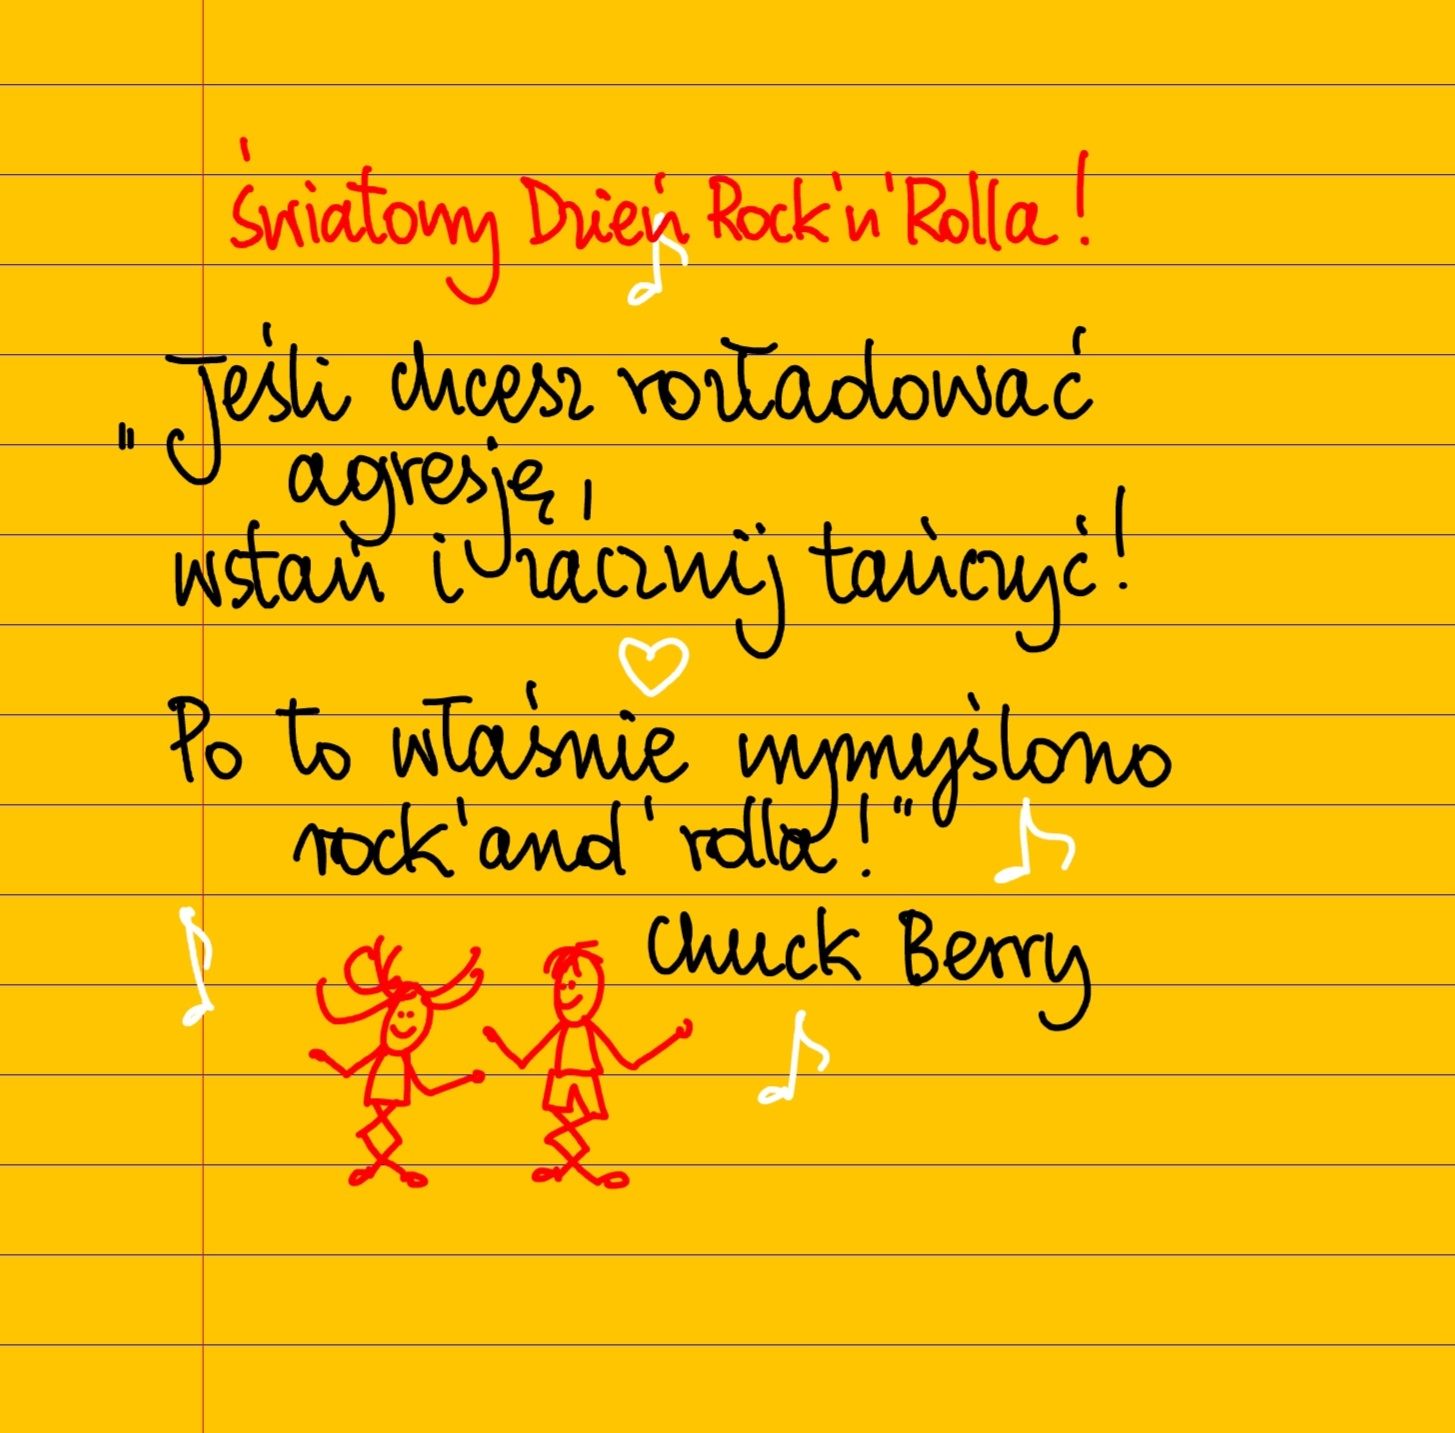 Światowy Dzień Rock'n'Rolla!
„Jeśli chcesz rozładować
agresję,
wstań i zacznij tańczyć!
Po to właśnie wymyślono
rock'and'rolla!"
Chuck Berry